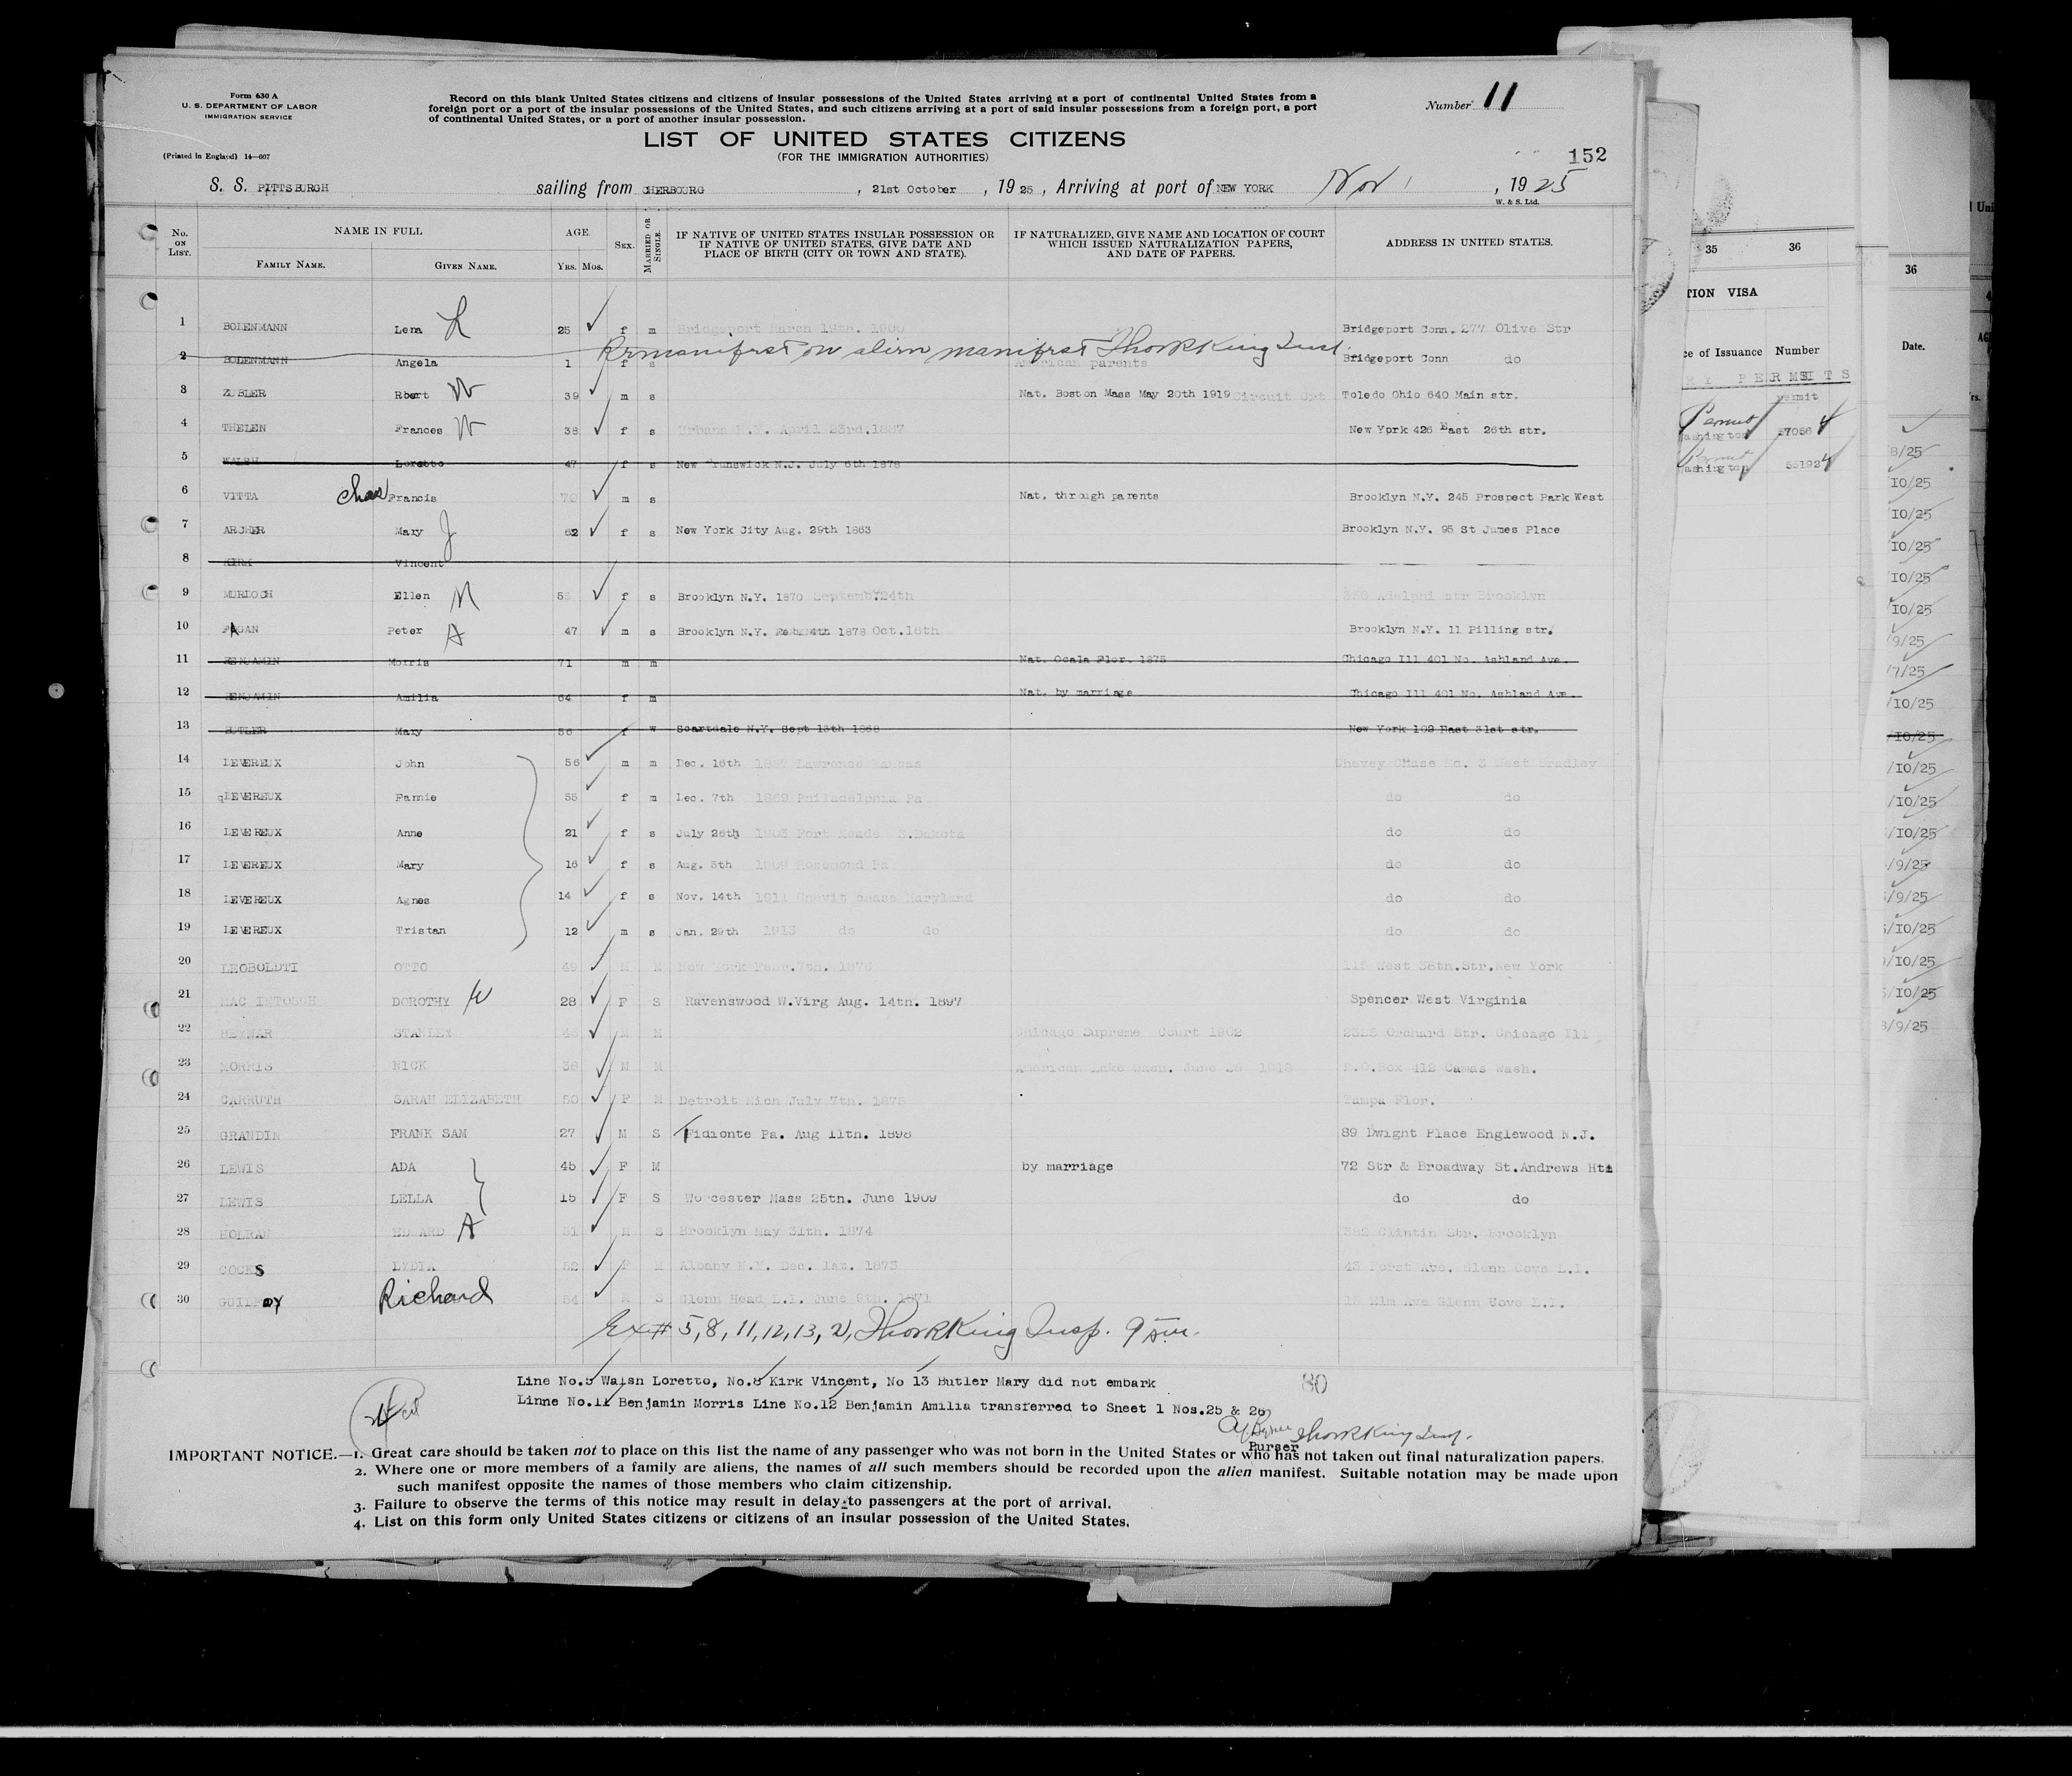 Form 630 A
U. S. DEPARTMENT OF LABOR
IMMIGRATION SERVICE
(Printed in England) 14—607
Record on this blank United States citizens and citizens of insular possessions of the United States arriving at a port of continental United States from a
foreign port or a port of the insular possessions of the United States, and such citizens arriving at a port of said insular possessions from a foreign port, a port
of continental United States, or a port of another insular possession.
Number 11
LIST OF UNITED STATES CITIZENS
(FOR THE IMMIGRATION AUTHORITIES)
152
S. S. PITTSBURGH sailing from CHERBOURG , 21st October , 19 25 , Arriving at port of NEW YORK Nov 1 , 19 25
W. & S. Ltd.
No. ON LIST. NAME IN FULL FAMILY NAME. GIVEN NAME. AGE. YRS. MOS. SEX. MARRIED OR SINGLE. IF NATIVE OF UNITED STATES INSULAR POSSESSION OR IF NATIVE OF UNITED STATES, GIVE DATE AND PLACE OF BIRTH (CITY OR TOWN AND STATE). IF NATURALIZED, GIVE NAME AND LOCATION OF COURT WHICH ISSUED NATURALIZATION PAPERS, AND DATE OF PAPERS. ADDRESS IN UNITED STATES.
1 BOLENMANN Lena L 25 f m Bridgeport March 19th. 1900 Bridgeport Conn. 277 Olive Str
Remanifest on alien manifest ThorRKing Insp.
2 BOLENMANN Angela 1 f s American parents Bridgeport Conn do
3 ZOBLER Rbert W 39 m s Nat. Boston Mass May 20th 1919 Circuit Crt Toledo Ohio 640 Main str.
4 THELEN Frances W 38 f s Urbana N.Y. April 23rd.1887 New York 426 East 26th str.
5 WALSH Loretto 47 f s New Brunswick N.J. July 6th 1878
6 VITTA Chas Francis 70 m s Nat. through parents Brooklyn N.Y. 245 Prospect Park West
7 ARCHER Mary J 62 f s New York City Aug. 29th 1863 Brooklyn N.Y. 95 St James Place
8 KIRK Vincent
9 MURDOCH Ellen M 55 f s Brooklyn N.Y. 1870 Septemb.24th 350 Adelphi str Brooklyn
10 FAGAN Peter A 47 m s Brooklyn N.Y. Feb.4th 1878 Oct.16th Brooklyn N.Y. 11 Pilling str.
11 BENJAMIN Morris 71 m m Nat. Ocala Flor. 1875 Chicago Ill 401 No. Ashland Ave.
12 BENJAMIN Amilia 64 f m Nat. by marriage Chicago Ill 401 No. Ashland Ave.
13 BUTLER Mary 56 f w Scartdale N.Y. Sept 13th 1868 New York 102 East 31st str.
14 LEVEREUX John 56 m m Dec. 16th Lawrence Kansas Chevey Chase No. 3 West Bradley
15 LEVEREUX Fannie 55 f m Dec. 7th 1869 Philadelphia Pa do do
16 LEVEREUX Anne 21 f s July 26th 1903 Fort Meade S.Dakota do do
17 LEVEREUX Mary 16 f s Aug. 5th 1909 Rosemond Pa do do
18 LEVEREUX Agnes 14 f s Nov. 14th 1911 Chevit chase Maryland do do
19 LEVEREUX Tristan 12 m s Jan. 29th 1913 do do do do
20 LEOBOLDTI OTTO 49 M M New York Febr.7th. 1876 115 West 38th.Str.New York
21 MAC INTOSCH DOROTHY W 28 F S Ravenswood W.Virg Aug. 14th. 1897 Spencer West Virginia
22 REYNAR STANLEY 48 M M Chicago Supreme Court 1902 2323 Orchard Str. Chicago Ill
23 MORRIS NICK 38 M M American Lake Wash. June 26 1918 P.O.Box 412 Camas Wash.
24 CARRUTH SARAH ELIZABETH 50 F M Detroit Mich July 7th. 1875 Tampa Flor.
25 GRANDIN FRANK SAM 27 M S Tidionte Pa. Aug 11th. 1898 89 Dwight Place Englewood N.J.
26 LEWIS ADA 45 F M by marriage 72 Str & Broadway St.Andrews Htl
27 LEWIS LELLA 15 F S Worcester Mass 25th. June 1909 do do
28 HOLRAN EDWARD A 51 M S Brooklyn May 31th. 1874 382 Clintin Str. Brooklyn
29 COCKS LYDIA 52 F M Albany N.Y. Dec. 1st. 1873 43 Forst Ave. Glenn Cove L.I.
30 GUILFOY Richard 54 M S Glenn Head L.I. June 9th. 1871 15 Elm Ave Glenn Cove L.I.
Ex# 5, 8, 11, 12, 13, 2, ThorRKing Insp. 9 am.
Line No.5 Walsh Loretto, No.8 Kirk Vincent, No 13 Butler Mary did not embark
80
Linne No.11 Benjamin Morris Line No.12 Benjamin Amilia transferred to Sheet 1 Nos.25 & 26
ThorRKing Insp.
Purser
IMPORTANT NOTICE.—1. Great care should be taken not to place on this list the name of any passenger who was not born in the United States or who has not taken out final naturalization papers.
2. Where one or more members of a family are aliens, the names of all such members should be recorded upon the alien manifest. Suitable notation may be made upon
such manifest opposite the names of those members who claim citizenship.
3. Failure to observe the terms of this notice may result in delay to passengers at the port of arrival.
4. List on this form only United States citizens or citizens of an insular possession of the United States.
35 36
TION VISA
ce of Issuance Number
RY PERMITS
permit
Permit
ashington 57056
Permit
ashington 55192
36
Date.
8/25
10/25
10/25
10/25
10/25
10/25
/9/25
/7/25
/10/25
/10/25
/10/25
/10/25
/10/25
/9/25
/9/25
/10/25
/10/25
/10/25
/9/25